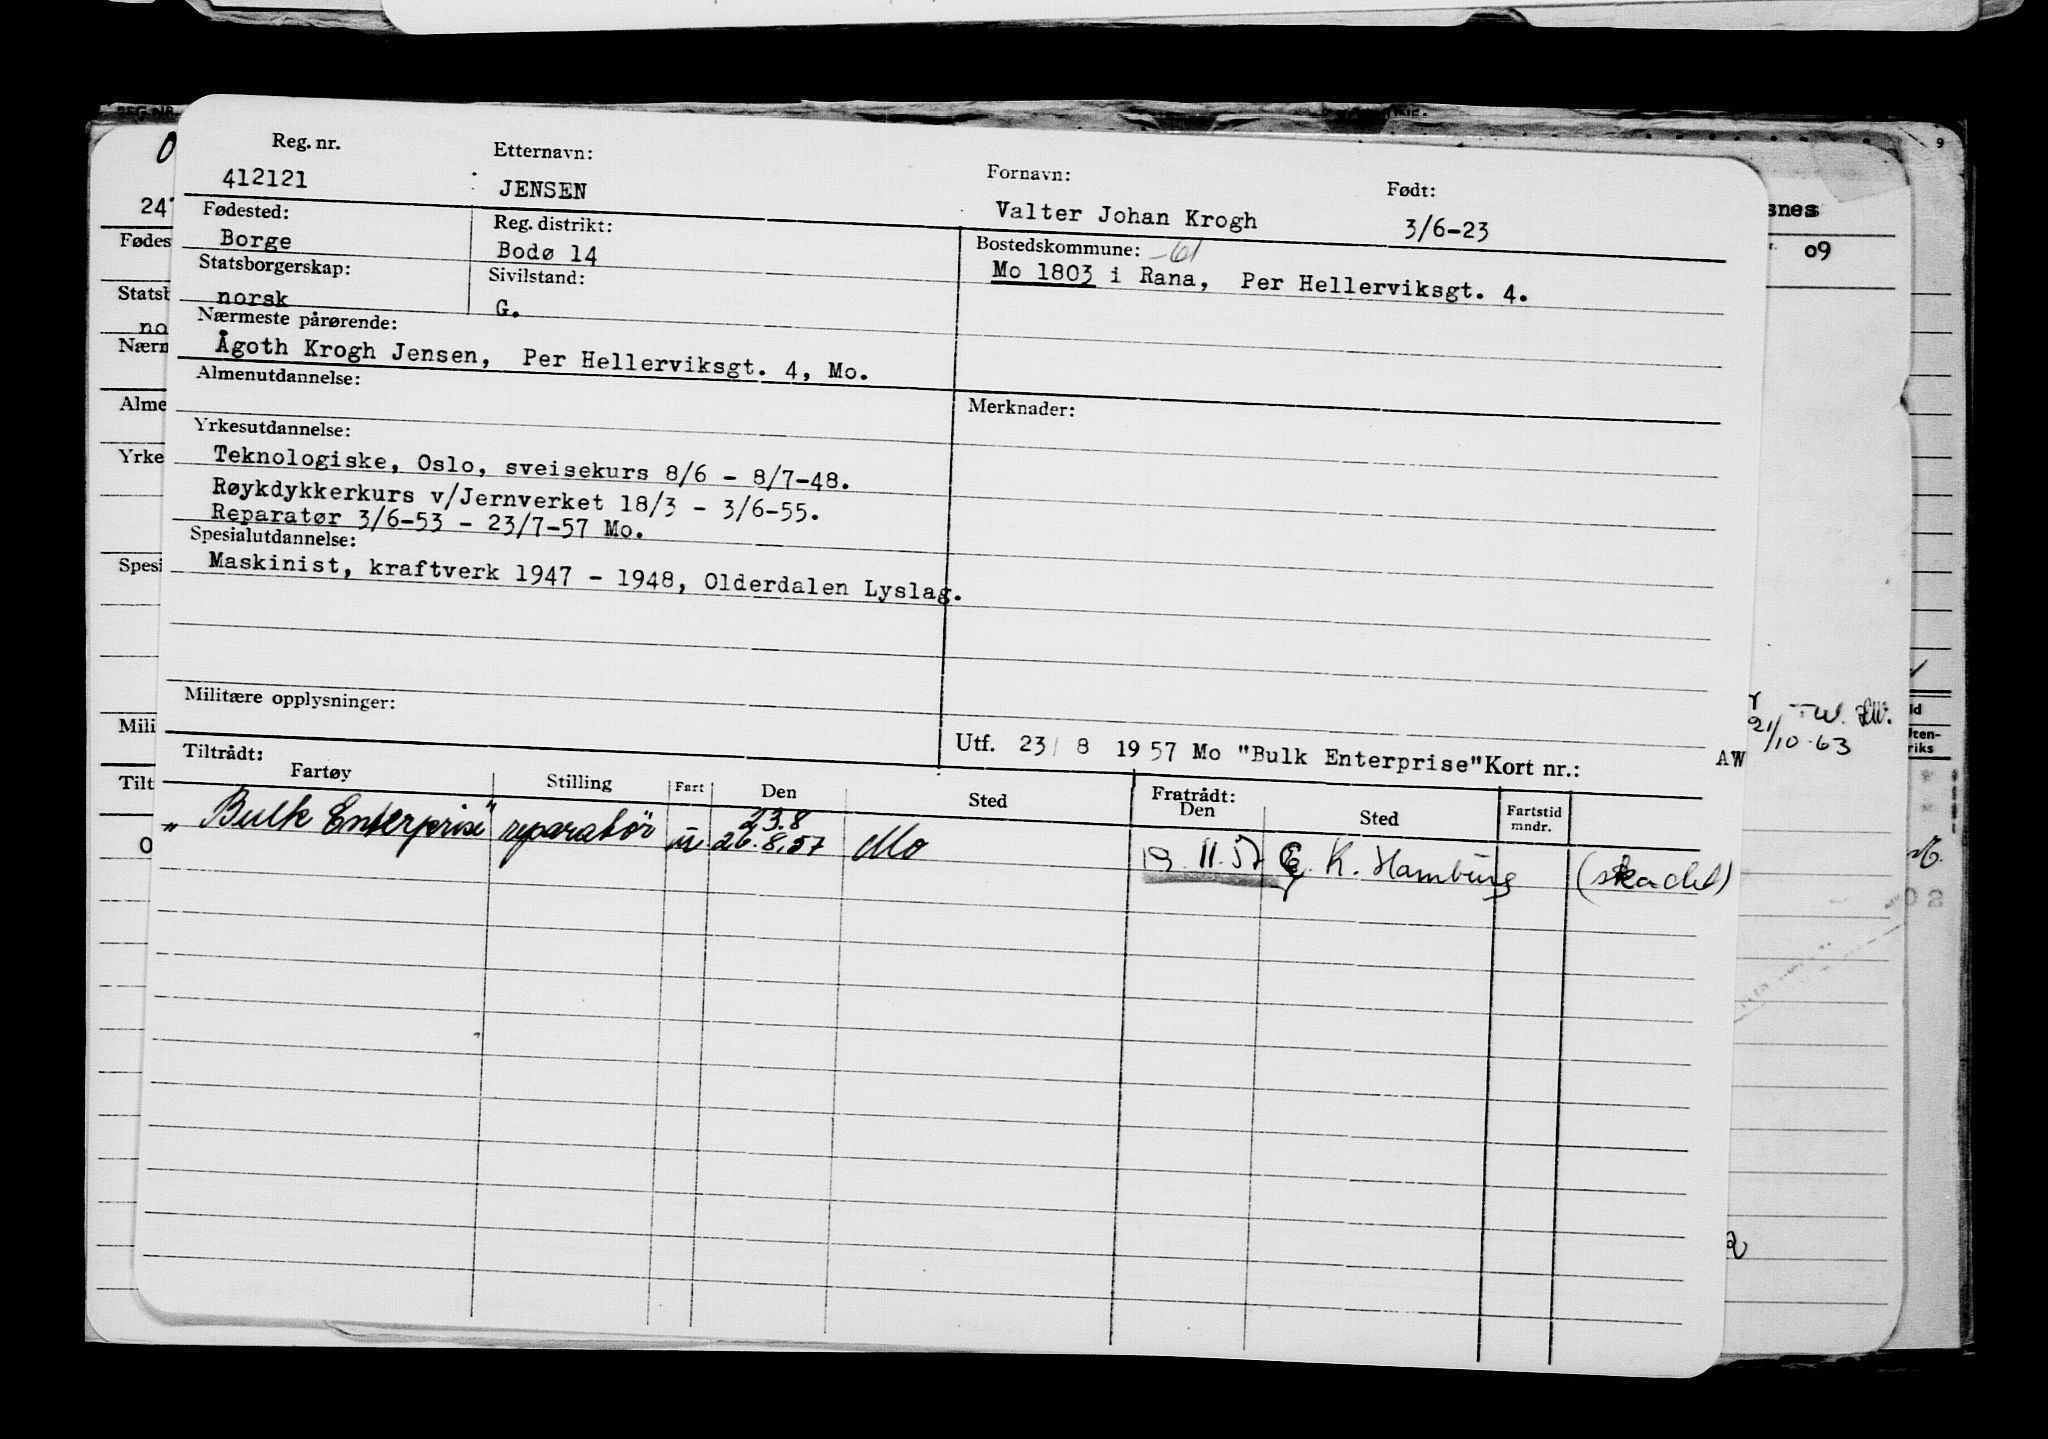 Reg. nr. Etternavn: Fornavn: Født:
412121 JENSEN Valter Johan Krogh 3/6-23
Fødested: Reg. distrikt: Bostedskommune: -61
Borge Bodø 14 Mo 1803 i Rana, Per Hellerviksgt. 4.
Statsborgerskap: Sivilstand:
norsk G.
Nærmeste pårørende:
Ågoth Krogh Jensen, Per Hellerviksgt. 4, Mo.
Almenutdannelse: Merknader:
Yrkesutdannelse:
Teknologiske, Oslo, sveisekurs 8/6 - 8/7-48.
Røykdykkerkurs v/Jernverket 18/3 - 3/6-55.
Reparatør 3/6-53 - 23/7-57 Mo.
Spesialutdannelse:
Maskinist, kraftverk 1947 - 1948, Olderdalen Lyslag.
Militære opplysninger:
Utf. 23/ 8 1957 Mo "Bulk Enterprise" Kort nr.: AW
Tiltrådt: Fratrådt:
Fartøy Stilling Fart Den Sted Den Sted Fartstid mndr.
23.8
"Bulk Enterprise" reparatør u 26.8.57 Mo 19.11.57 G. K. Hamburg (skadet)
O
24
Fødes
Statsb
no
Nærm
Alme
Yrke
Spesi
Mili
Tilt
snes
09
21/10-63
Uten-
riks
02
9